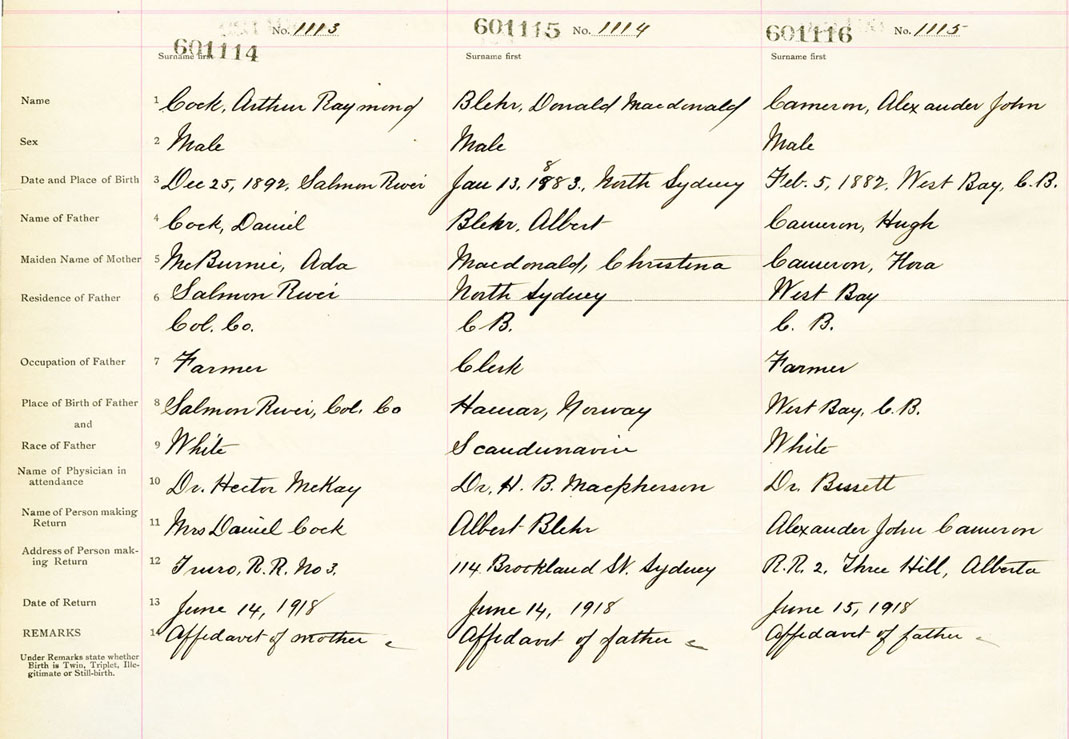 No. 1113
601114
Surname first
601115 No. 1114
Surname first
601116 No. 1115
Surname first
Name 1 Cock, Arthur Raymond Blehr, Donald Macdonald Cameron, Alexander John
Sex 2 Male Male Male
Date and Place of Birth 3 Dec 25, 1892, Salmon River Jan 13, 1883, North Sydney Feb. 5, 1882, West Bay, C.B.
8
Name of Father 4 Cock, Daniel Blehr, Albert Cameron, Hugh
Maiden Name of Mother 5 McBurnie, Ada Macdonald, Christina Cameron, Flora
Residence of Father 6 Salmon River North Sydney West Bay
Col. Co. C.B. C. B.
Occupation of Father 7 Farmer Clerk Farmer
Place of Birth of Father 8 Salmon River, Col. Co Hamar, Norway West Bay, C.B.
and
Race of Father 9 White Scandinavin White
Name of Physician in
attendance 10 Dr. Hector McKay Dr, H. B. Macpherson Dr. Bissett
Name of Person making
Return 11 Mrs Daniel Cock Albert Blehr Alexander John Cameron
Address of Person mak-
ing Return 12 Truro, R.R. No 3. 114 Brookland St. Sydney R.R. 2, Three Hill, Alberta
Date of Return 13 June 14, 1918 June 14, 1918 June 15, 1918
REMARKS 14 Affidavit of mother Affidavit of father Affidavit of father
Under Remarks state whether
Birth is Twin, Triplet, Ille-
gitimate or Still-birth.